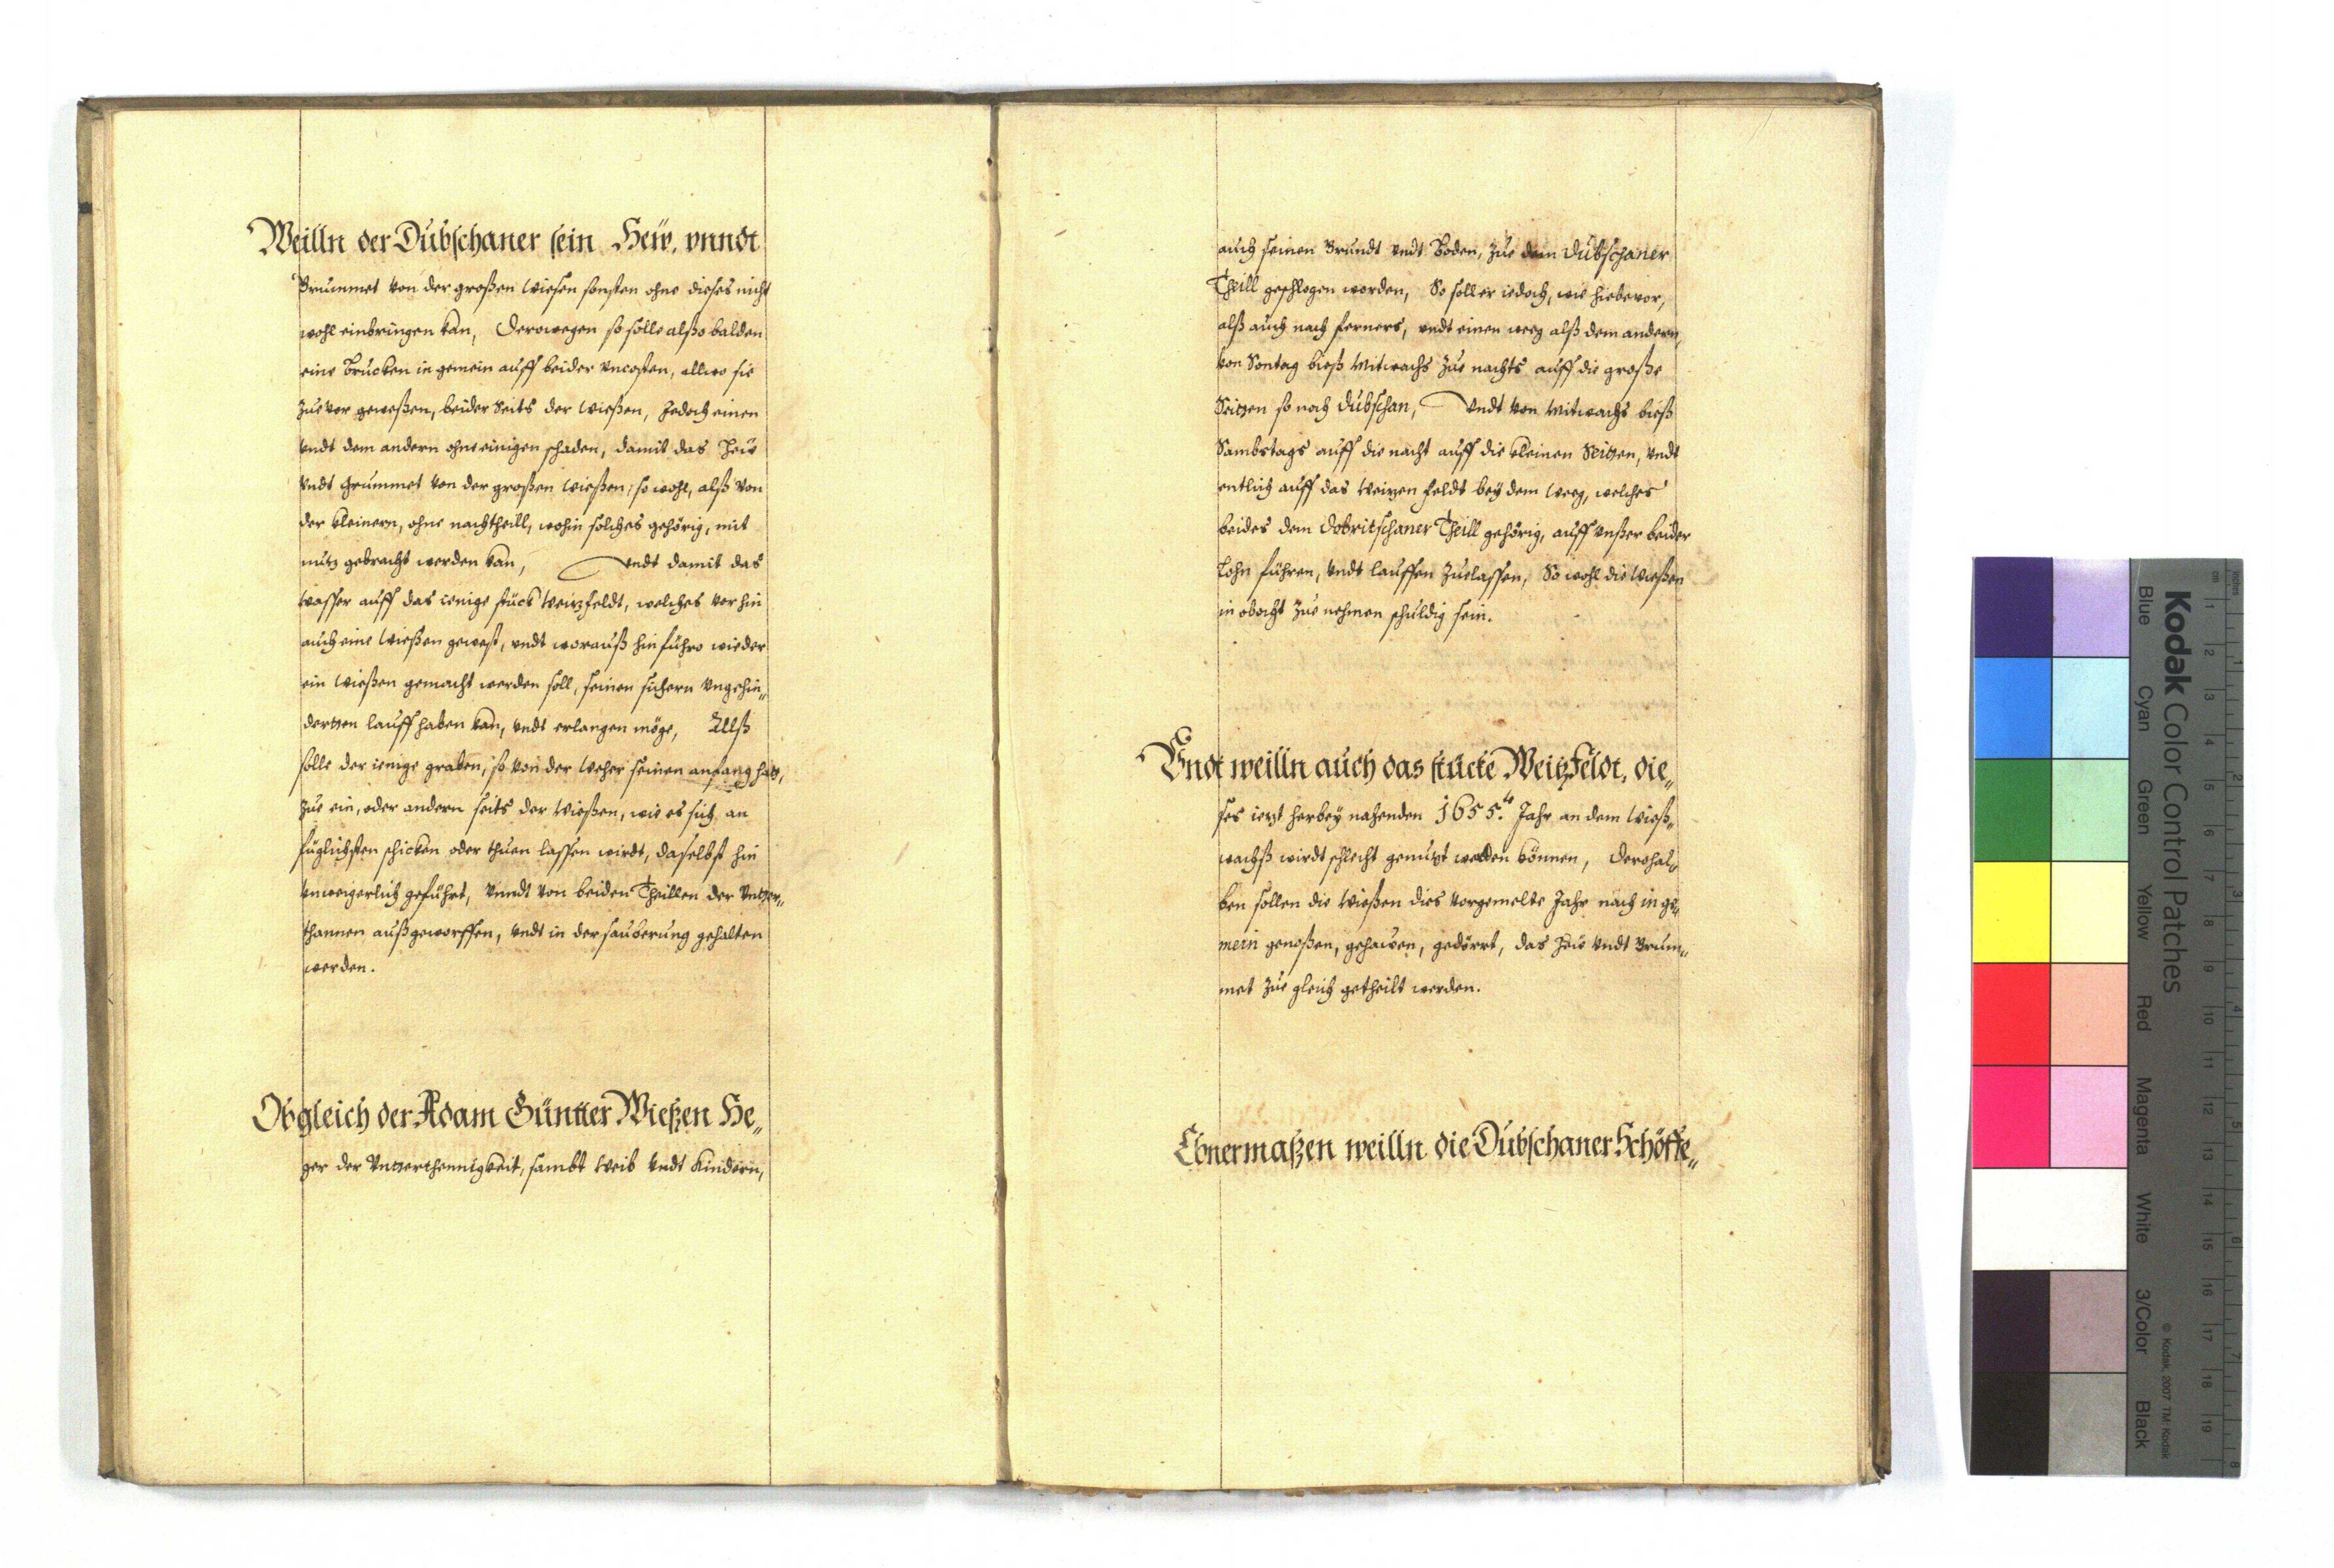 Weilln der Dubschaner sein Hew, vnndt
Grummet von der großen Wiesen sonsten ohne dieses nicht
wohl einbringen kan, Derowegen so solle alßo balden
eine Brucken in gemein auff beider vncosten, allwo sie
zue vor geweßen, beider Seits der Wießen, Jedoch einen
vndt dem andern ohne einigen schaden, damit das Hew
vndt Grummet von der großen Wießen, so wohl, alß von
der kleinern, ohne nachtheill, wohin solches gehörig, mit
nutz gebracht werden kan, vndt damit das
Wasser auff das ienige stuck Weitzfeldt, welches vorhin
auch eine Wießen gewest, vndt worauß hinführo wieder
ein Wießen gemacht werden soll, seinen sichern vngehin„
derten lauff haben kan, vndt erlangen möge, Allß
solle der ienige graben, so von der Weher seinen anfang hat,
zue ein, oder andern seits der Wießen, wie es sich an
füglichsten schicken oder thuen lassen wirdt, daselbst hin
vnweigerlich geführt, vnndt von beiden Theillen der Vnter„
thannen außgeworffen, vndt in der sauberung gehalten
werden.
Obgleich der Adam Güntter Wießen He„
ger der Vnterthennigkeit, sambt Weib vndt Kindern,
auch seinen Grundt vndt Boden, zue dem Dubschaner
Theill geschlogen worden, So soll er iedoch, wie hiebevor,
alß auch nach ferners, vndt einen weeg alß dem andern,
von Sontag bieß Mitwachs zue nachts auff die große
Seitten so nach Dubschan, vndt von Mitwachs bieß
Sambstags auff die nacht auff die kleinen Seitten, vndt
entlich auff das Weitzen feldt bey dem Weeg, welches
beides dem Dobritschaner Theill gehörig, auff vnßer beider
Lohn führen, vndt lauffen zuelassen, So wohl die Wießen
in obacht zue nehmen schuldig sein.
Vndt weilln auch das stucke Weitzfeldt, die„
ses ietzt herbey nahenden 1655.te Jahr an dem Wieß„
wachß wirdt schlecht genutzt werden können, Derohal„
ben sollen die Wießen dies vorgemelte Jahr nach in ge„
mein genoßen, gehawen, gedörrt, das Hew vndt Grum„
met zue gleich getheilt werden.
Ebnermaßen weilln die Dubschaner Schöffe„
Kodak Color Control Patches
Blue Cyan Green Yellow Red Magenta White 3/Color Black
© Kodak, 2007 TM: Kodak
inches 1 2 3 4 5 6 7 8
cm 1 2 3 4 5 6 7 8 9 10 11 12 13 14 15 16 17 18 19